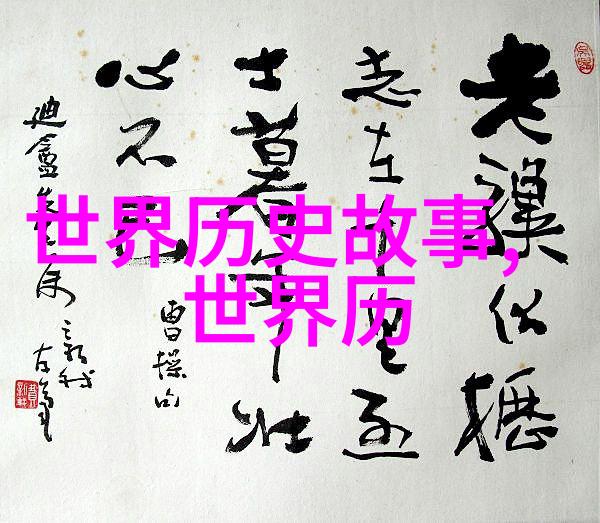 世界历史故事,
世界历
老驥伏櫪
志在千里烈
士暮年壮
心不已
曹操句
迪盦